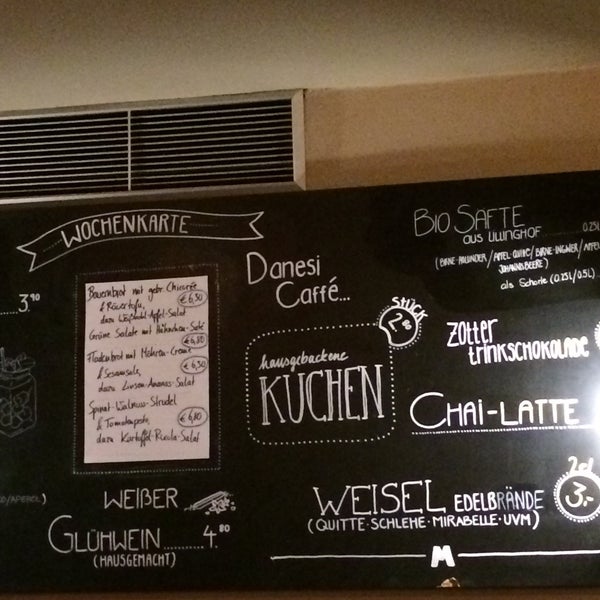 WOCHENKARTE
3.90
Bauernbrot mit gebr. Chicorée
& Räuertofu,
€ 6,50
dazu Weißkohl-Apfel-Salat
Grüne Salate mit Hähnchen-Saté
€ 6,80
Fladenbrot mit Möhren-Creme
& Sesamsalz,
€ 6,50
dazu Linsen-Ananas-Salat
Spinat-Walnuss-Strudel
& Tomatenpesto,
€ 6,80
dazu Kartoffel-Rucola-Salat
/APEROL)
WEIẞER
GLÜHWEIN........4.80
(HAUSGEMACHT)
Danesi
Caffé...
STÜCK
2.80
hausgebackene
KUCHEN
BIO SÄFTE
AUS ULLINGHOF........0.25L
(BIRNE-HOLUNDER/APFEL-QUITTE/BIRNE-INGWER/APFEL
JOHANNISBEERE)
als Schorle (0.25L/0.5L)
Zotter
trinkschokolade
CHAI-LATTE
2cl
3,-
WEISEL EDELBRÄNDE
(QUITTE·SCHLEHE·MIRABELLE·UVM)
M